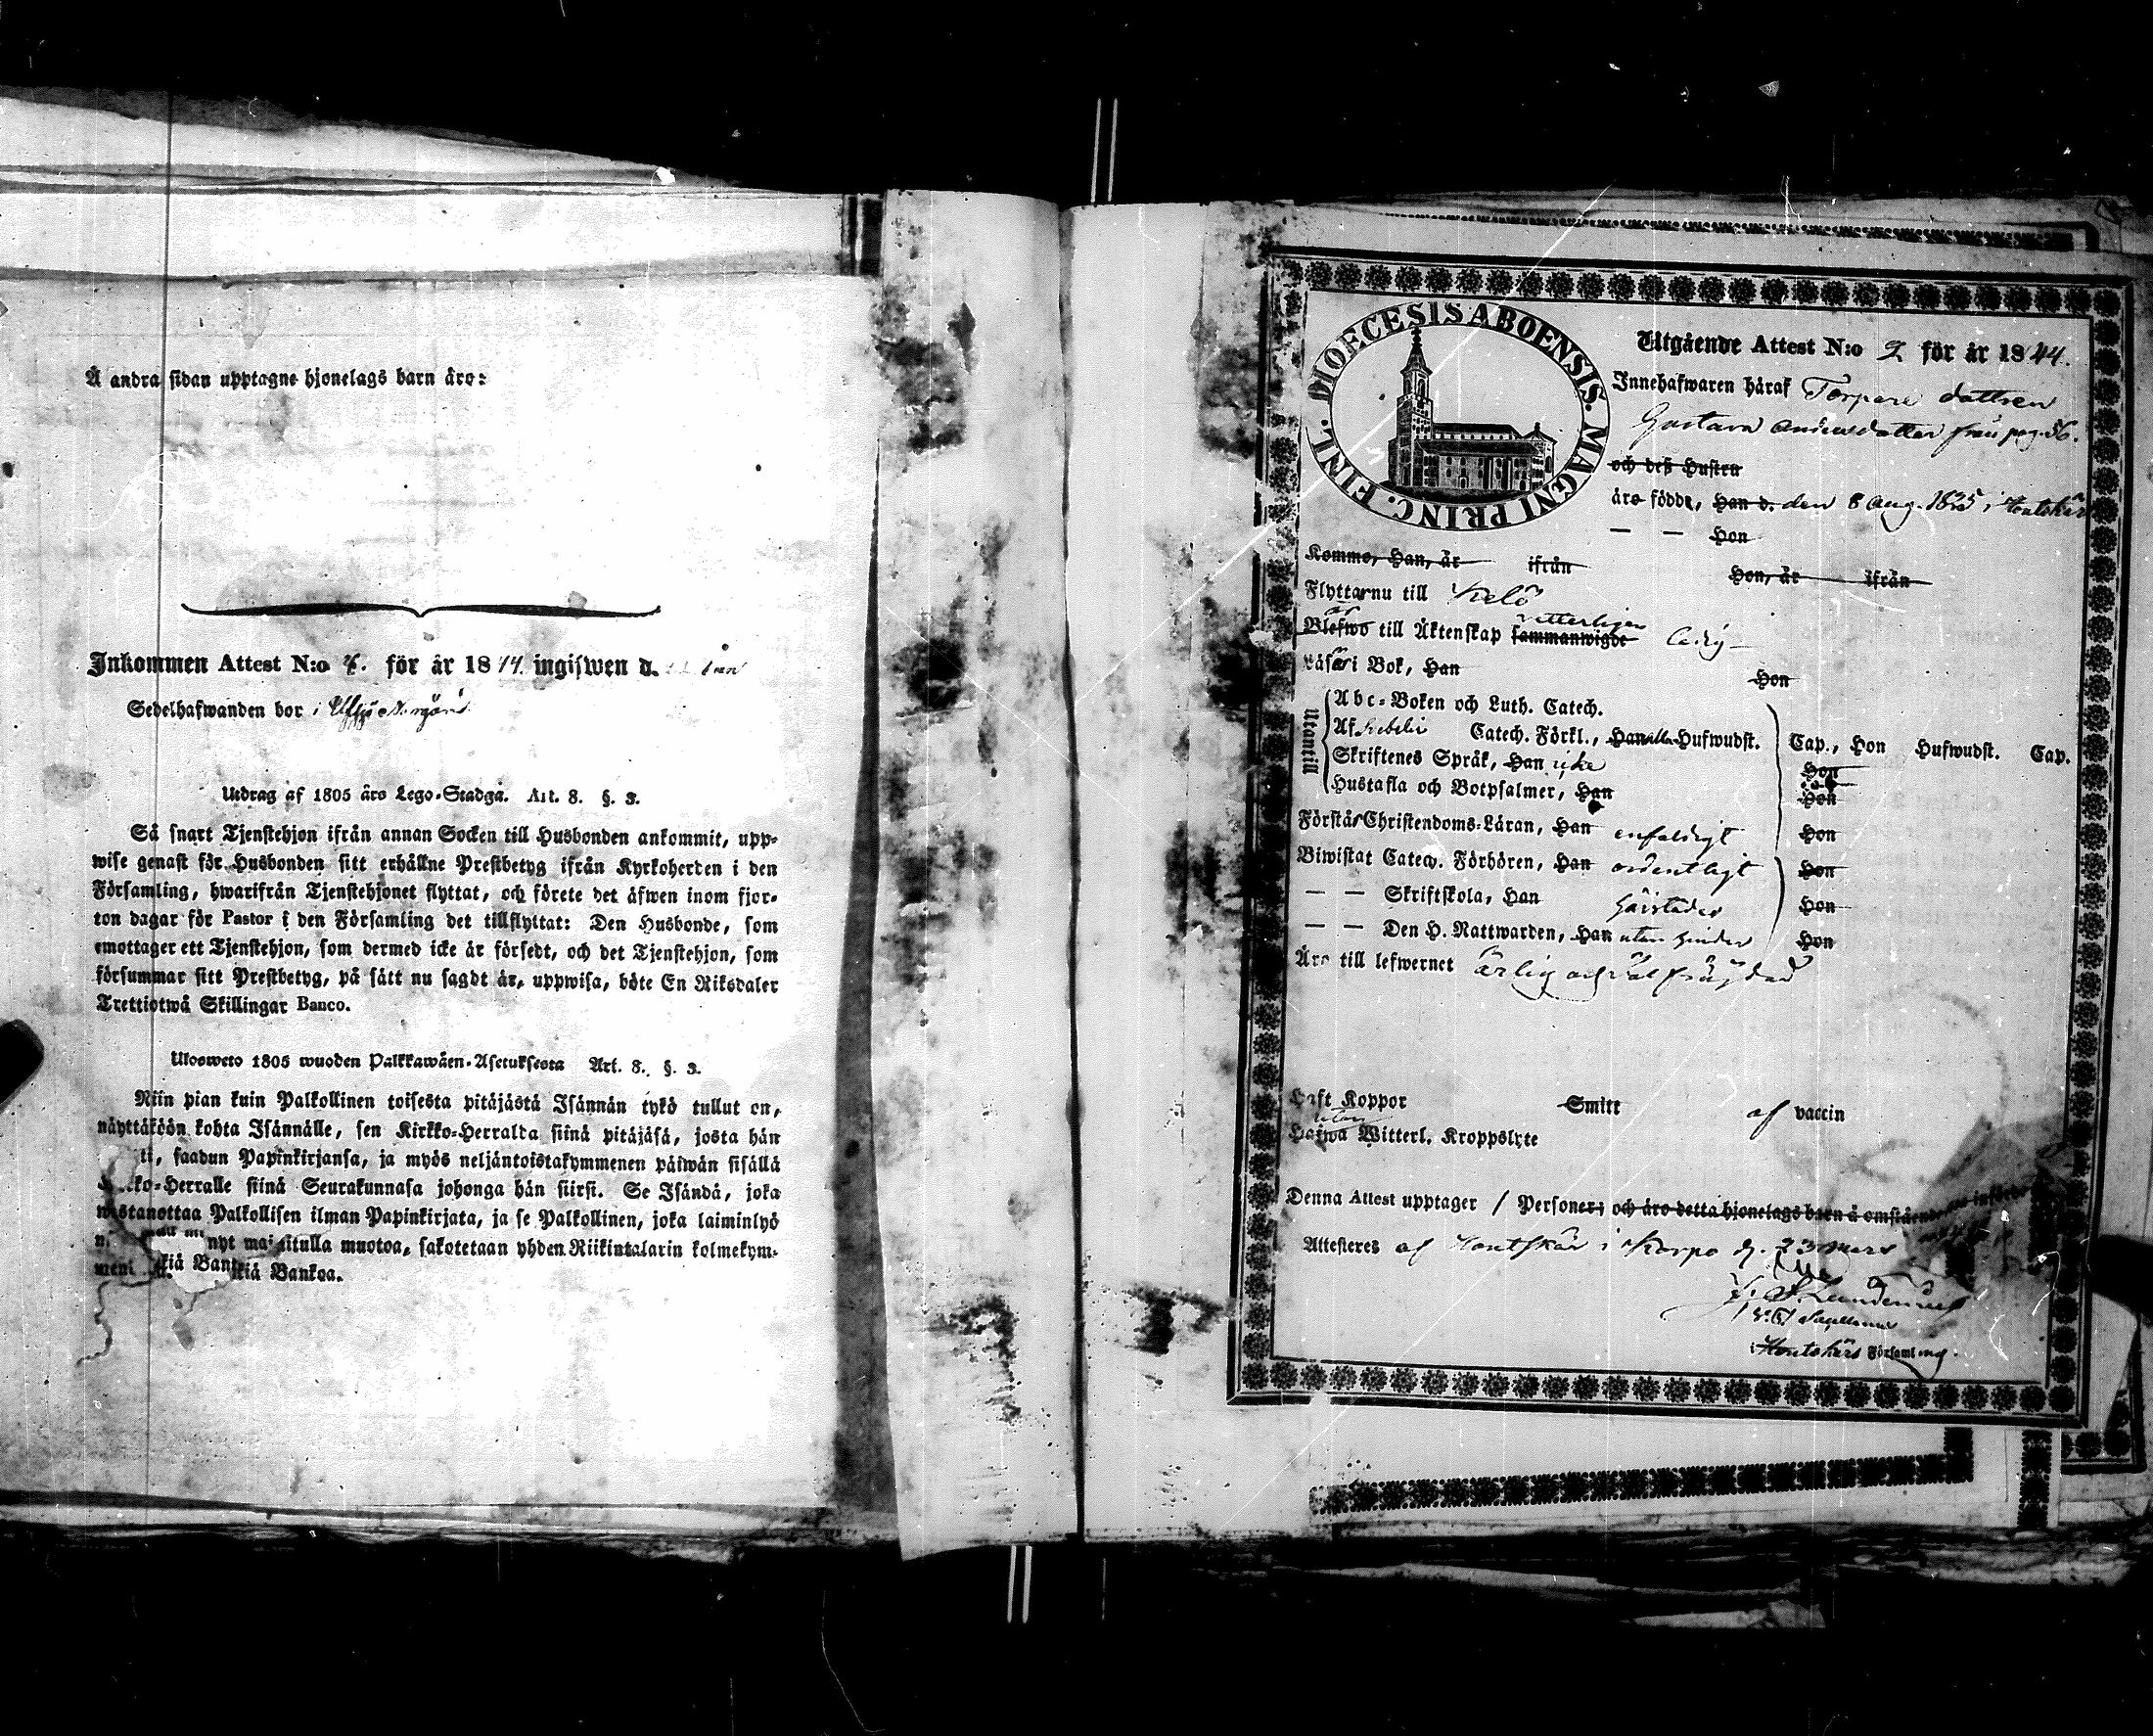 Å andra sidan upptagne hjonelags barn äro:
Inkommen Attest N:o för år 1844. ingifwen d.
Sedelhafwanden bor i
Utdrag af 1805 års Lego-Stadga. Art. 8. §. 3.
Så snart Tjenstehjon ifrån annan Socken till Husbonden ankommit, upp-
wise genast för Husbonden sitt erhållne Prestbetyg ifrån Kyrkoherden i den
Församling, hwarifrån Tjenstehjonet flyttat, och förete det äfwen inom fjor-
ton dagar för Pastor i den Församling det tillflyttat: Den Husbonde, som
emottager ett Tjenstehjon, som dermed icke är försedt, och det Tjenstehjon, som
försummar sitt Prestbetyg, på sätt nu sagdt är, uppwisa, böte En Riksdaler
Trettiotwå Skillingar Banco.
Ulosweto 1805 wuoden Palkkawäen-Asetuksesta Art. 8. §. 3.
Niin pian kuin Palkollinen toisesta pitäjästä Isännän tykö tullut on,
näyttäköön kohta Isännälle, sen Kirkko-Herralda siinä pitäjäsä, josta hän
saadun Papinkirjansa, ja myös neljäntoistakymmenen päiwän sisällä
Herralle siinä Seurakunnasa johonga hän siirsi. Se Isändä, joka
wastanottaa Palkollisen ilman Papinkirjata, ja se Palkollinen, joka laiminlyö
nyt mainitulla muotoa, sakotetaan yhden Riikintalarin kolmekym-
Bankoa.
DIOECESIS ABOENSIS. MAGNI PRINC. FINL.
Utgående Attest N:o 2 för år 1844.
Innehafwaren häraf Torpare dottren
Gustava Andersdotter från pag. 56.
och deß Hustru
äro födde, Han d. den 8 Aug. 1825 i Houtskär
— — Hon
Komme, Han, år ifrån Hon, år ifrån
Flyttar nu till Kelö
Blefwo till Äktenskap sammanwigde witterligen ledig
Läser i Bok, Han Hon
Utantill
Abc-Boken och Luth. Catech.
Af Catech. Förkl., Han alla Hufwudst. Cap., Hon Hufwudst. Cap.
Skriftenes Språk, Han icke Hon
Hustafla och Botpsalmer, Han Hon
Förstår Christendoms-Läran, Han enfaldigt Hon
Biwistat Catech. Förhören, Han ordentligt Hon
— — Skriftskola, Han härstädes Hon
— — Den H. Nattwarden, Han utan hinder Hon
Äro till lefwernet ärlig och wälfräjdad
Haft Koppor Smitt af vaccin
utan
Hafwa Witterl. Kroppslyte
Denna Attest upptager 1 Personer; och äro detta hjonelags barn å omstående
Attesteres af Houtskär i Korpo d. 23 Mars
Houtskärs Församling.